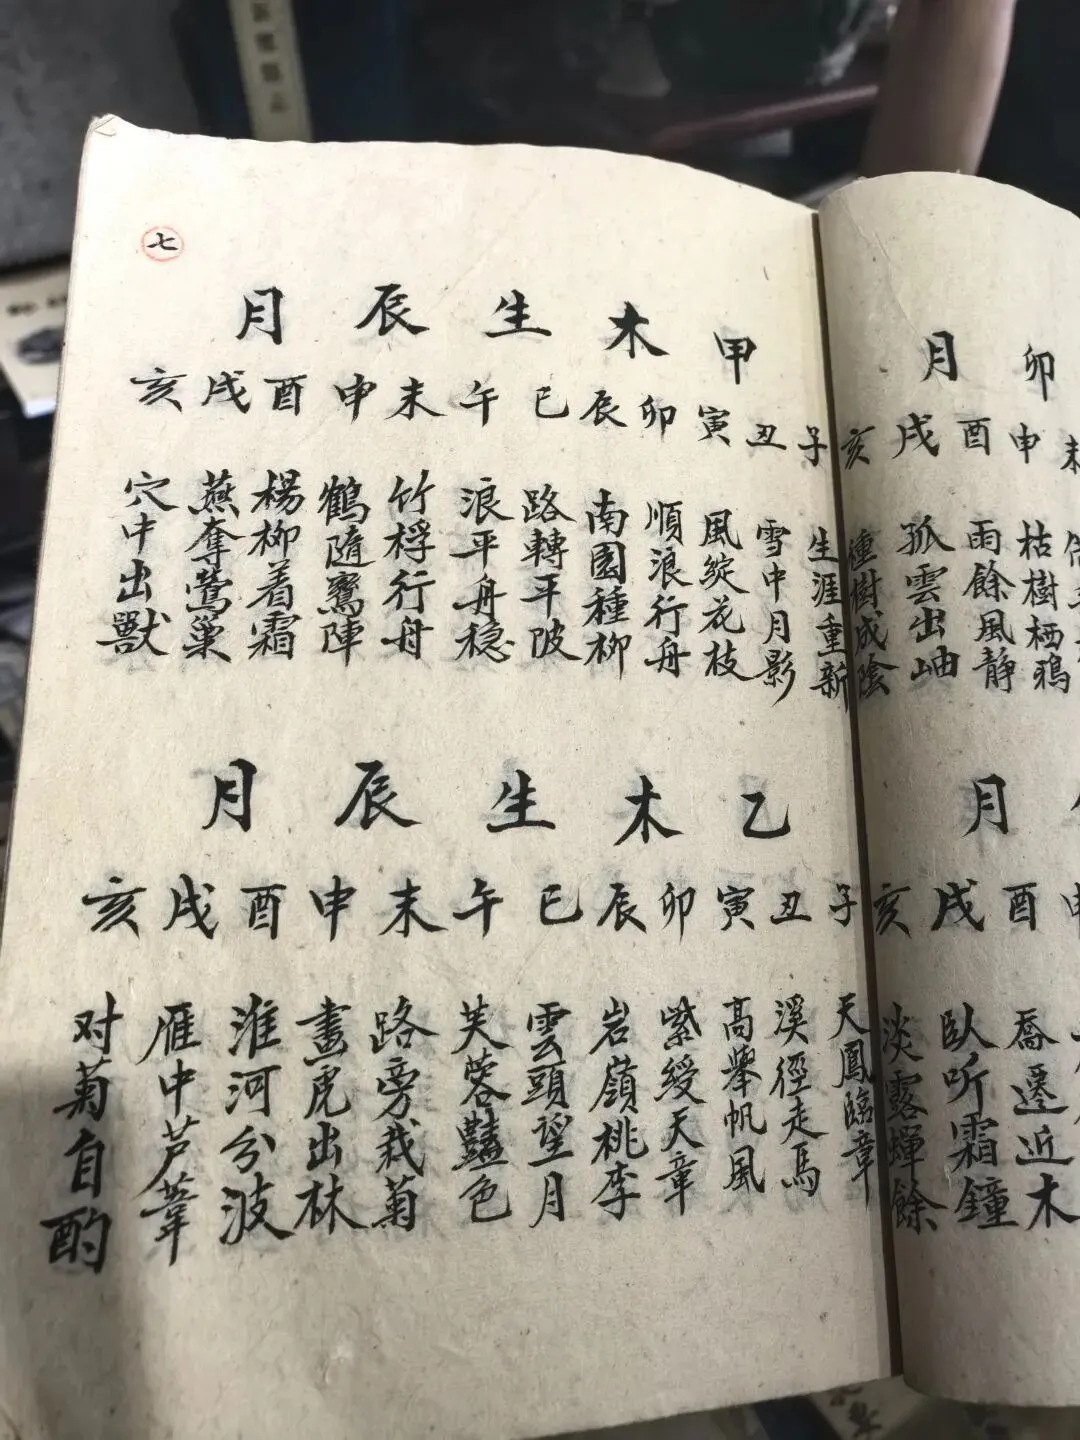 七
甲木生辰月
子丑寅卯辰巳午未申酉戌亥
生涯重新
雪中月影
風綻花枝
順浪行舟
南園種柳
路轉平陂
浪平舟穏
竹桴行舟
鶴隨鸞陣
楊柳着霜
燕奪鶯巢
穴中出獸
乙木生辰月
子丑寅卯辰巳午未申酉戌亥
天鳳臨章
溪徑走馬
高舉帆風
紫綬天章
岩嶺桃李
雲頭望月
芙蓉艷色
路旁栽菊
畫虎出林
淮河分波
雁中芦葦
对菊自酌
卯月
未申酉戌亥
枯樹栖鴉
雨餘風静
孤雲出岫
樹成陰
月
申酉戌亥
喬遷近木
臥听霜鐘
淡露蟬餘